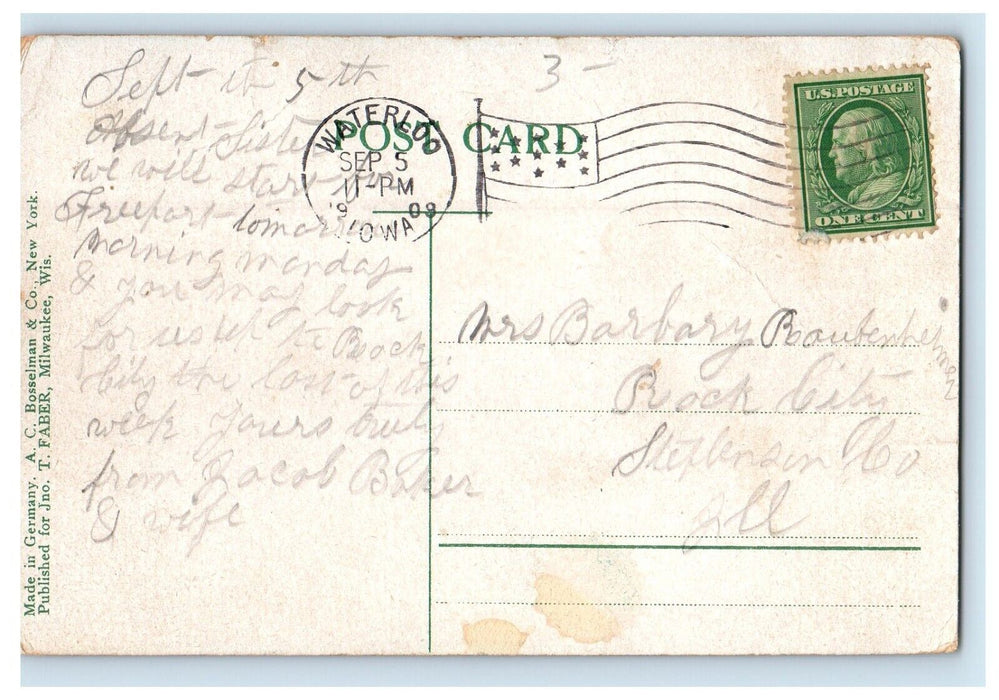 Made in Germany. A. C. Bosselman & Co., New York.
Published for Jno. T. FABER, Milwaukee, Wis.
POST CARD.
3 -
U.S. POSTAGE
ONE CENT
WATERLOO
SEP 5
11-PM
IOWA
Sept the 5 th
Absent Sister
we will start
Freeport tomorrow
morning monday
& you may look
for us
to Rock
City the last of this
week yours truly
from Jacob Baker
& wife
Mrs Barbary Raubenheimer
Rock City
Stephenson Co
Ill